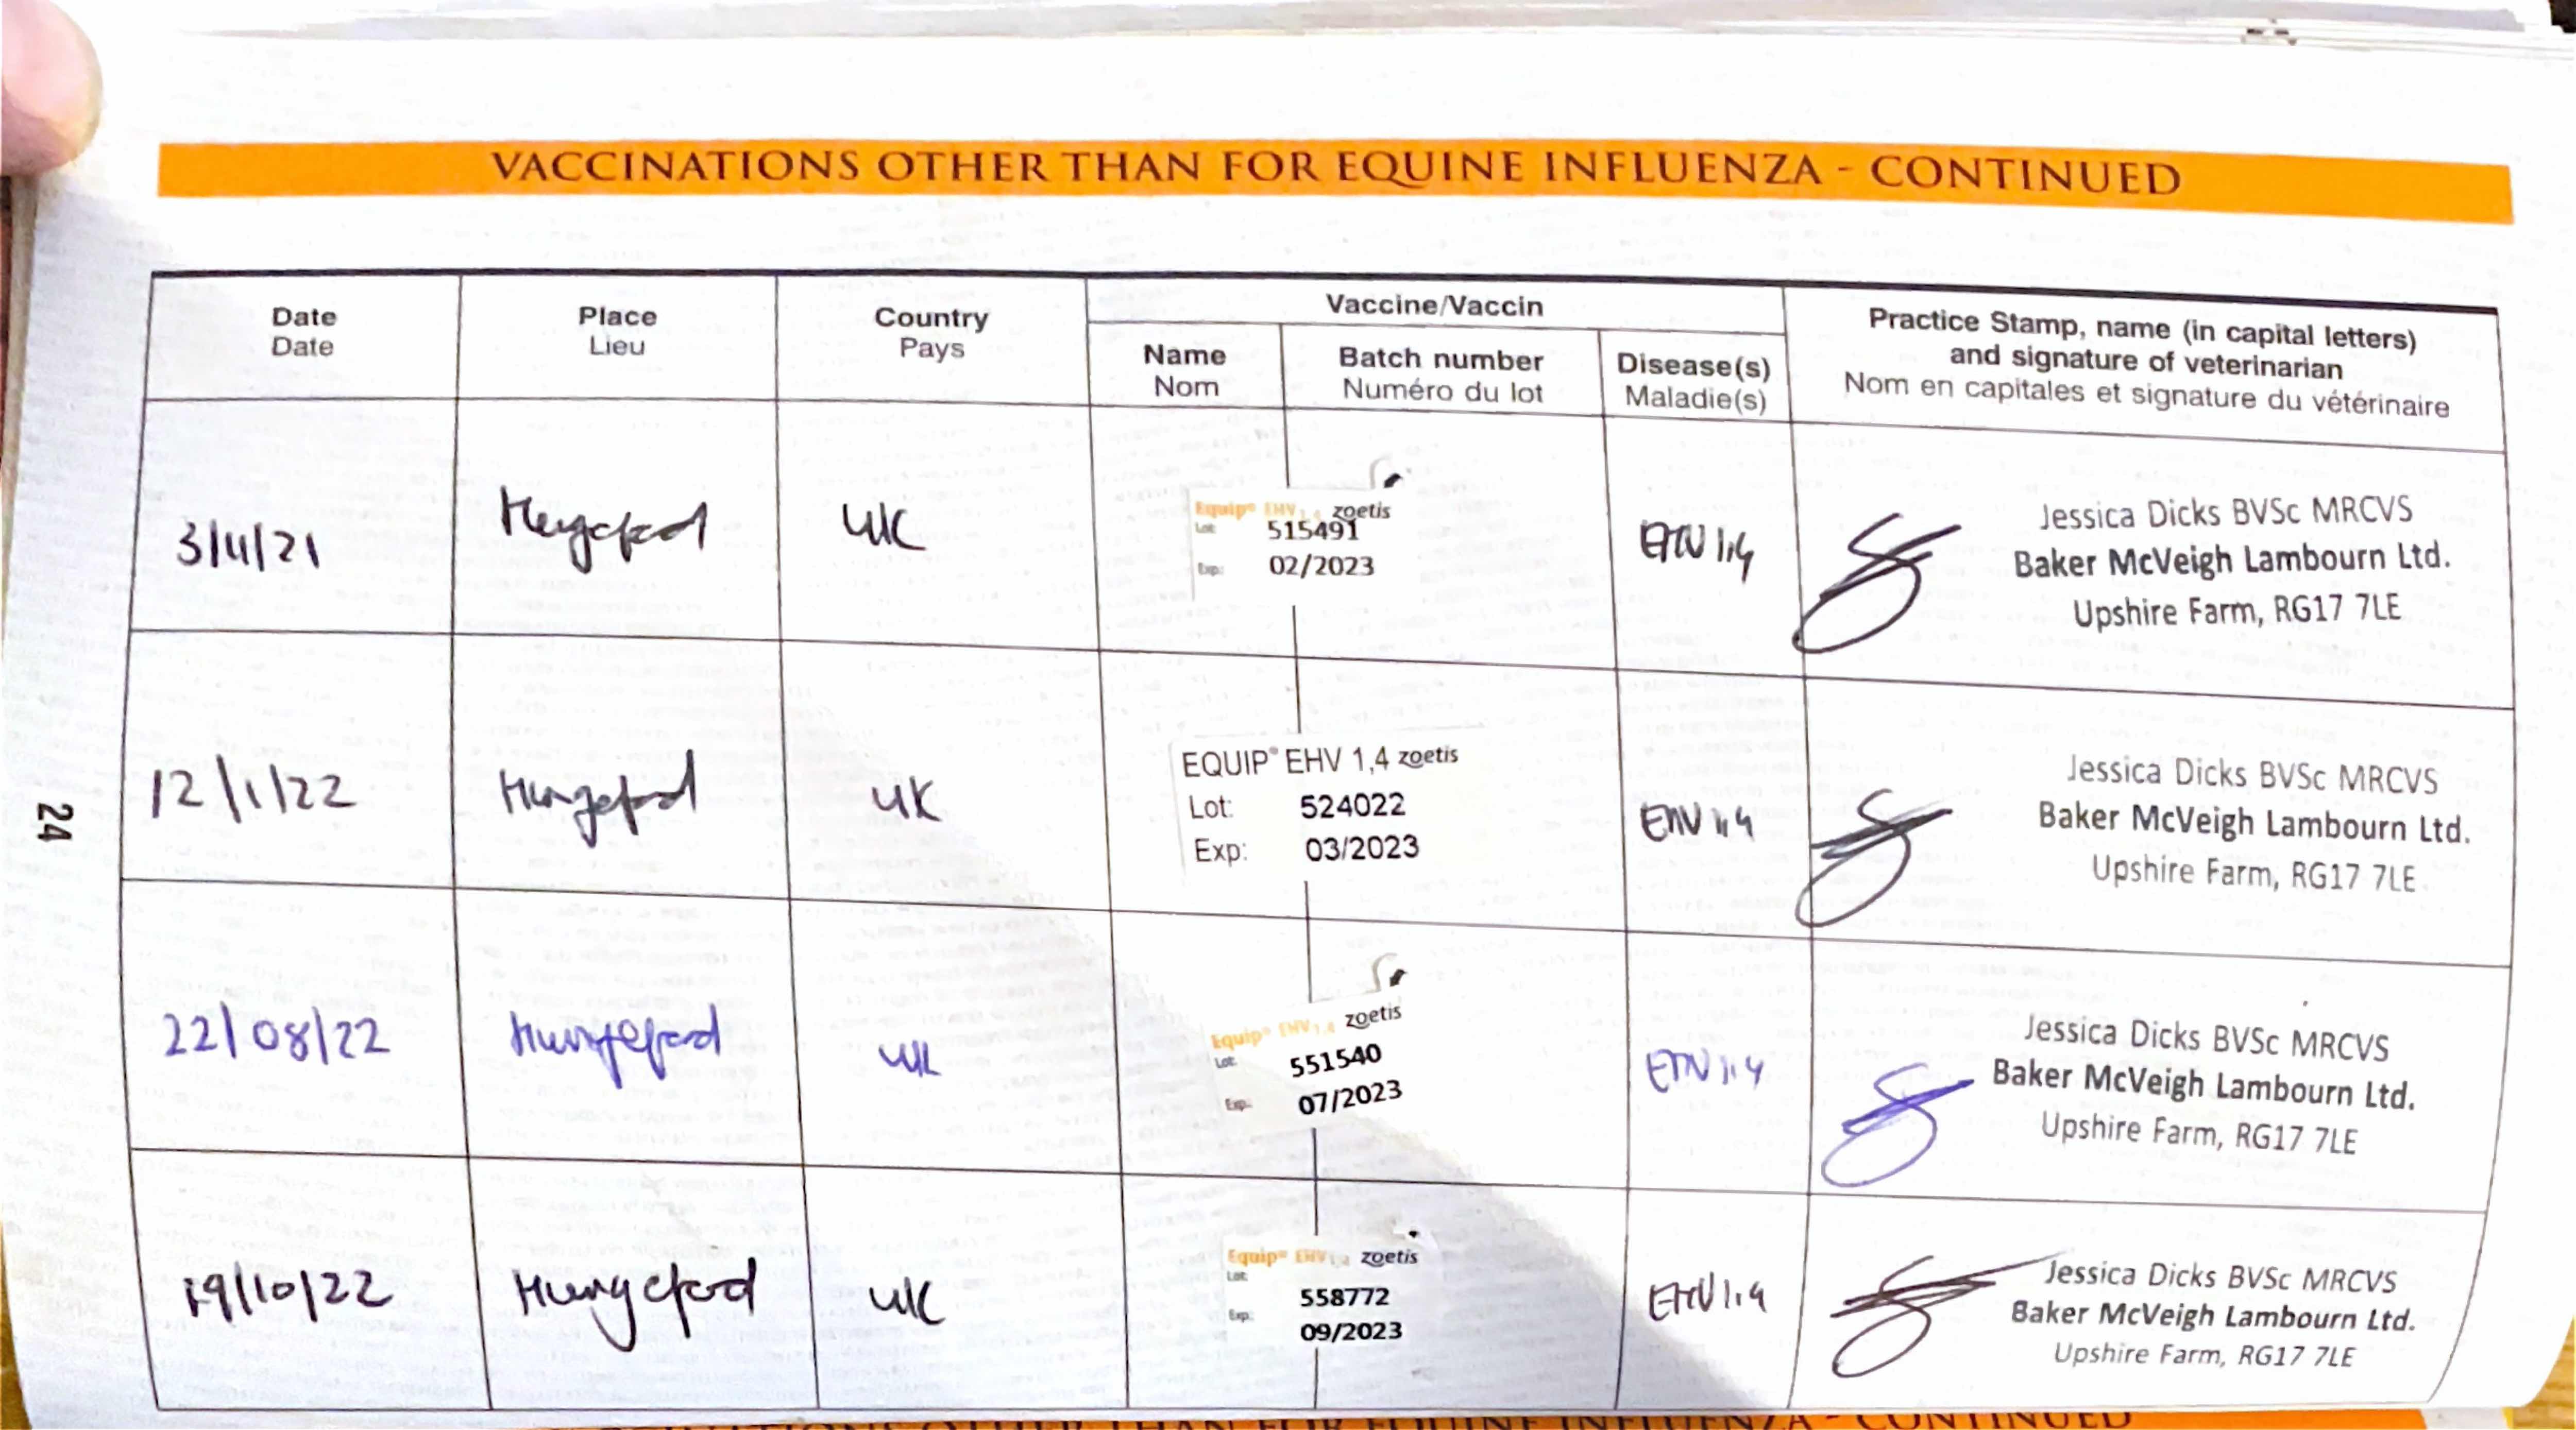 VACCINATIONS OTHER THAN FOR EQUINE INFLUENZA - CONTINUED
Date
Date
Place
Lieu
Country
Pays
Vaccine/Vaccin
Name
Nom
Batch number
Numéro du lot
Disease(s)
Maladie(s)
Practice Stamp, name (in capital letters)
and signature of veterinarian
Nom en capitales et signature du vétérinaire
3/11/21
Hungerford
UK
Equip® EHV 1,4 zoetis
Lot: 515491
Exp: 02/2023
EHV 1,4
Jessica Dicks BVSc MRCVS
Baker McVeigh Lambourn Ltd.
Upshire Farm, RG17 7LE
12/1/22
Hungerford
UK
EQUIP® EHV 1,4 zoetis
Lot: 524022
Exp: 03/2023
EHV 1,4
Jessica Dicks BVSc MRCVS
Baker McVeigh Lambourn Ltd.
Upshire Farm, RG17 7LE
22/08/22
Hungerford
UK
Equip® EHV 1,4 zoetis
Lot: 551540
Exp: 07/2023
EHV 1,4
Jessica Dicks BVSc MRCVS
Baker McVeigh Lambourn Ltd.
Upshire Farm, RG17 7LE
19/10/22
Hungerford
UK
Equip® EHV 1,4 zoetis
Lot: 558772
Exp: 09/2023
EHV 1,4
Jessica Dicks BVSc MRCVS
Baker McVeigh Lambourn Ltd.
Upshire Farm, RG17 7LE
24
OTHER THAN FOR EQUINE INFLUENZA - CONTINUED